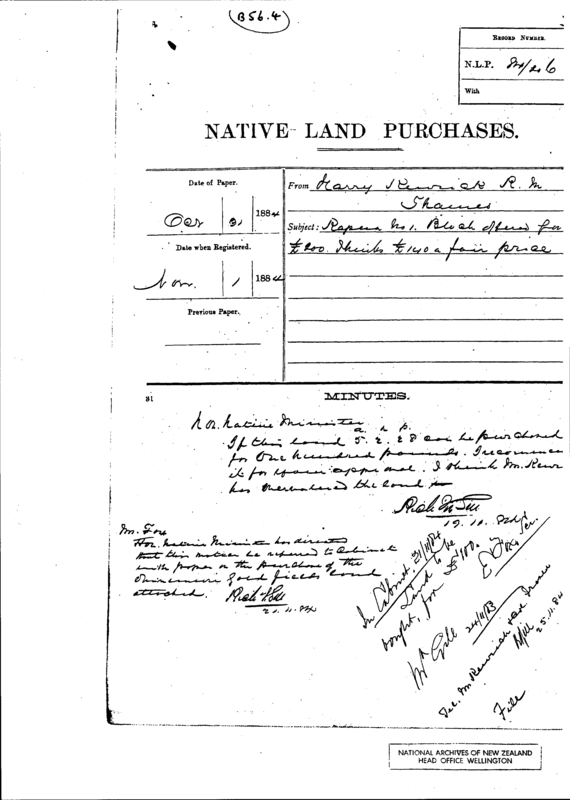 (B56.4)
RECORD NUMBER.
N.L.P. 84/
With
NATIVE LAND PURCHASES.
Date of Paper.
Oct 31 1884
Date when Registered.
Nov. 1 1884
Previous Paper.
From Harry Kenrick R. M.
Thames
Subject: No 1. Block offered for
£200. Thinks £140 a fair price
31
MINUTES.
Hon. Native Minister
a r p
If this land 5. 2. 28 can be purchased
for One hundred pounds. I recommend
it for your approval. I think Mr. Kenr
has overvalued the land
19. 11. 84
Mr. Fox
Hon. Native Minister has directed
that this matter be referred to Cabinet
with papers on the purchase of the
gold fields land
attached.
21. 11. 84
In Cabinet.
Land to be
bought, for £100.
Mr Gill
Tel. Mr Kenrick
25.11.84
File
NATIONAL ARCHIVES OF NEW ZEALAND
HEAD OFFICE WELLINGTON